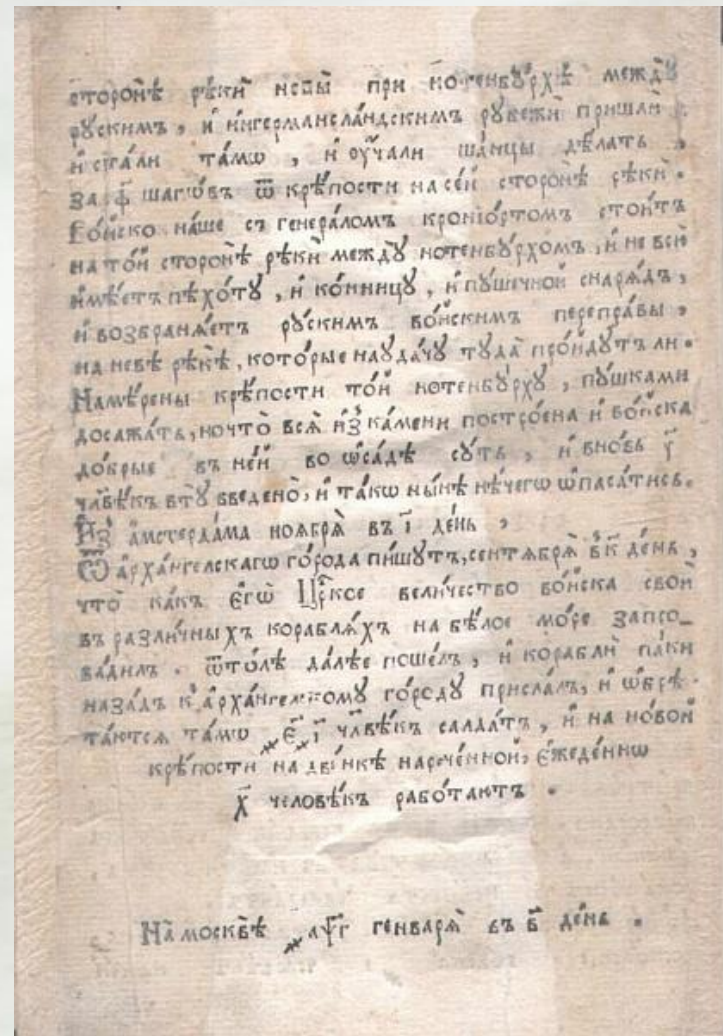 сторонѣ рѣкѝ невы̀ при нотенбꙋ́рхѣ междꙋ̀
рꙋскимъ, и҆ и҆нгерманела́ндскимъ рꙋбежѝ пришлѝ
и҆ ста́ли та́мѡ, и҆ ᲂу҆ча́ли ша́нцы дѣ́лать,
за ф҃ шагѡ́въ ѿ крѣ́пости на се́й сторонѣ̀ рѣкѝ.
Во́йско на́ше съ генера́ломъ кронїо́ртомъ стои́тъ
на то́й сторонѣ̀ рѣкѝ междꙋ̀ нотенбꙋ́рхомъ, и҆ не всю̀
и҆мѣ́етъ пѣхо́тꙋ, и҆ ко́нницꙋ, и҆ пꙋ́шечной снарѧ́дъ,
и҆ возбранѧ́етъ рꙋ́скимъ во́йскимъ перепра́вы,
на невѣ̀ рѣкѣ̀, кото́рые наꙋда́чꙋ тꙋда̀ про́йдꙋтъ ли.
Намѣ́рены крѣ́пости то́й нотенбꙋ́рхꙋ, пꙋ́шками
досажда́ть, но что̀ всѧ̀ и҆з̾ ка́мени постро́ена и҆ во́йска
до́брые въ не́й во ѡ҆са́дѣ сꙋ́ть, и҆ вно́вь у҃
члвѣ́къ втꙋ̀ введено̀, и҆ та́кѡ ны́нѣ нѣ́чегѡ ѡ҆паса́тисѧ.
И҆з̾ а҆мстерда́ма ноѧбрѧ̀ въ і҃ де́нь,
Ѿ а҆рха́нгелскагѡ го́рода пи́шꙋтъ, сентѧбрѧ̀ въ к҃ де́нь,
что̀ ка́къ є҆гѡ̀ Цр҃кое вели́чество во́йска своѝ
въ разли́чныхъ кораблѧ́хъ на бѣ́лое мо́ре запро_
вадилъ. ѿто́лѣ да́лѣе поше́лъ, и҆ кораблѝ па́ки
наза́дъ к̾ а҆рха́нгелскомꙋ го́родꙋ присла́лъ, и҆ ѡ҆брѣ_
та́ютсѧ та́мѡ ҂є҃і҃ члвѣ́къ салда́тъ, и҆ на но́вой
крѣ́пости на дви́нкѣ нарече́нной, є҆жеде́ннѡ
х҃ человѣ́къ рабо́таютъ.
На̀ москвѣ̀ ҂аѱ҃г генварѧ̀ въ в҃ де́нь.